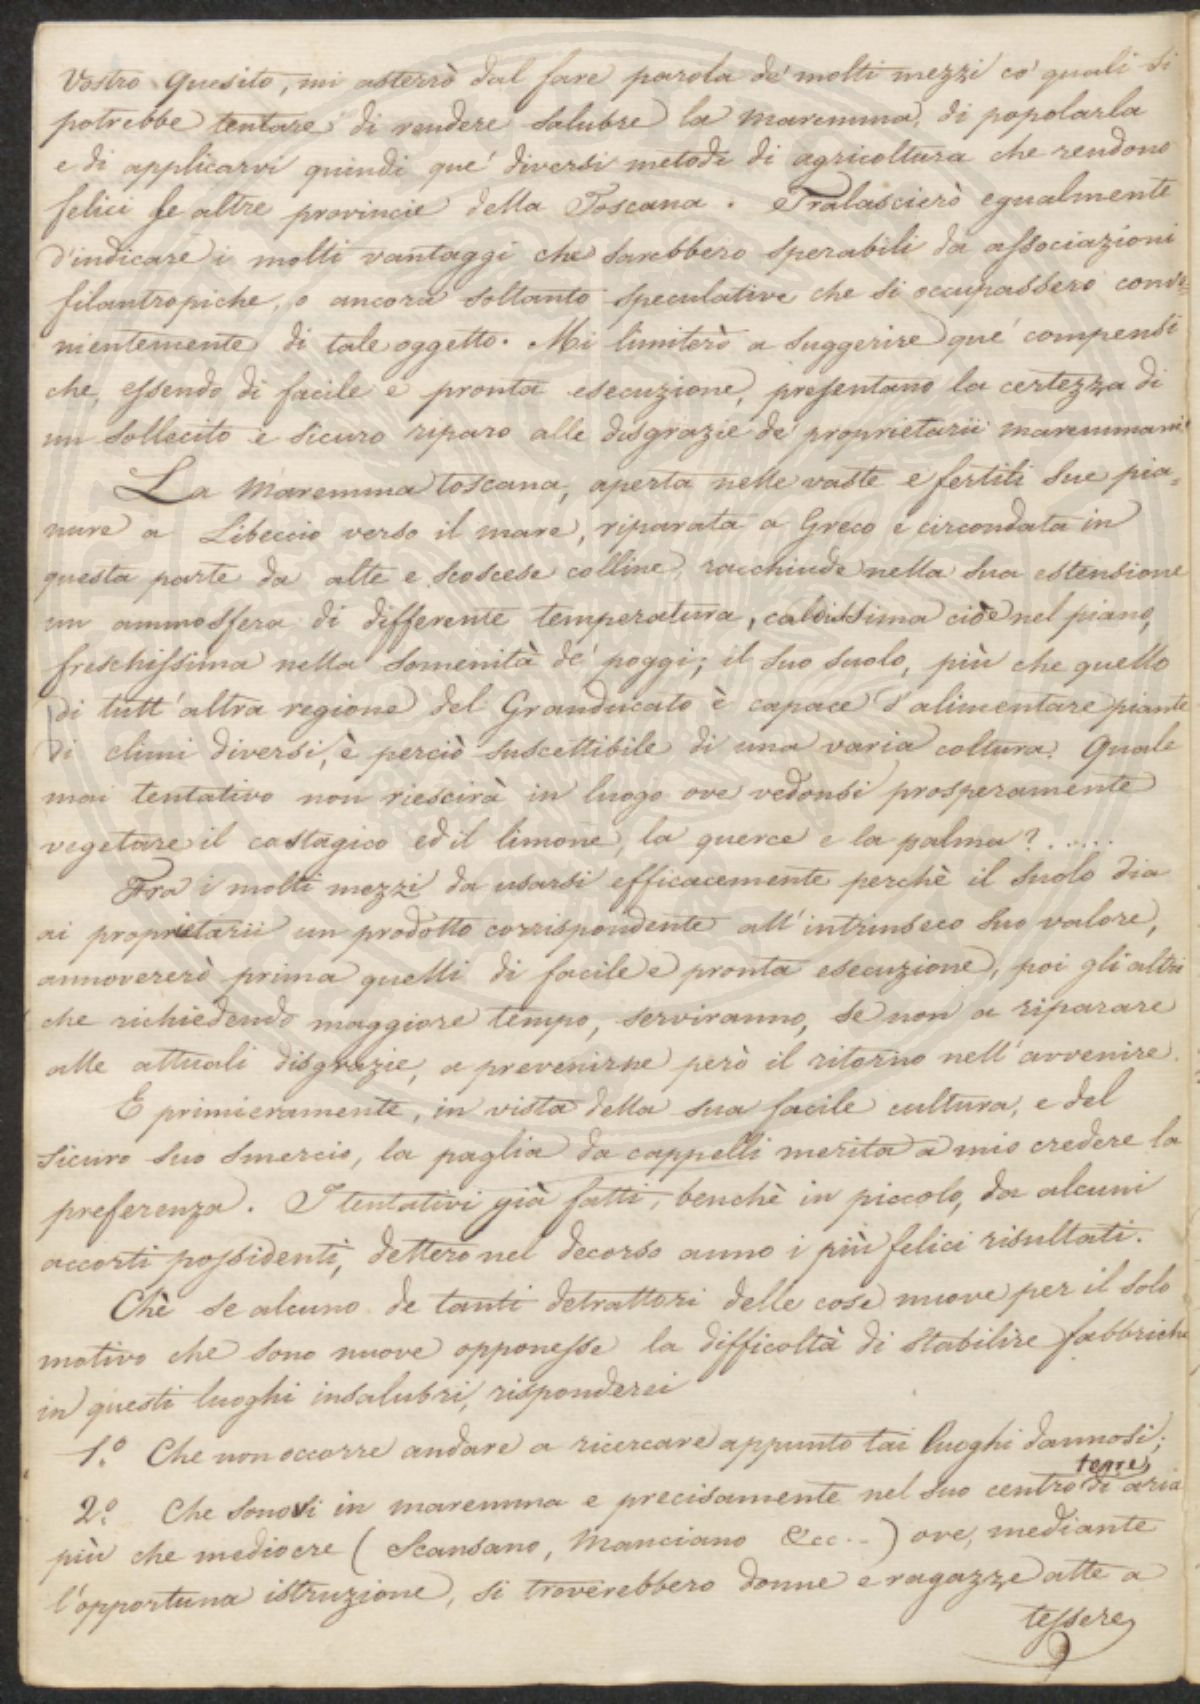 Vostro Quesito, mi asterrò dal fare parola de' molti mezzi co' quali si
potrebbe tentare di rendere salubre la maremma, di popolarla
e di applicarvi quindi que' diversi metodi di agricoltura che rendono
felici le altre provincie della Toscana. Tralascierò egualmente
d'indicare i molti vantaggi che sarebbero sperabili da associazioni
filantropiche, o ancora soltanto speculative che si occupassero conve=
nientemente di tale oggetto. Mi limiterò a suggerire que' compensi
che, essendo di facile e pronta esecuzione, presentano la certezza di
un sollecito e sicuro riparo alle disgrazie de' proprietarii maremmani.
La Maremma toscana, aperta nelle vaste e fertili sue pia=
nure a Libeccio verso il mare, riparata a Greco e circondata in
questa parte da alte e scoscese colline, racchiude nella sua estensione
un ammosfera di differente temperatura, caldissima cioè nel piano,
freschissima nella somenità de' poggi; il suo suolo, più che quello
di tutt'altra regione del Granducato è capace d'alimentare piante
di climi diversi, è perciò suscettibile di una varia coltura. Quale
mai tentativo non riescirà in luogo ove vedonsi prosperamente
vegetare il castagico ed il limone, la querce e la palma? .....
Fra i molti mezzi da usarsi efficacemente perchè il suolo dia
ai proprietarii un prodotto corrispondente all'intrinseco suo valore,
annovererò prima quelli di facile e pronta esecuzione, poi gli altri
che richiedendo maggiore tempo, serviranno, se non a riparare
alle attuali disgrazie, a prevenirne però il ritorno nell'avvenire.
E primieramente, in vista della sua facile cultura, e del
sicuro suo smercio, la paglia da cappelli merita a mio credere la
preferenza. I tentativi già fatti, benchè in piccolo, da alcuni
accorti possidenti, dettero nel decorso anno i più felici risultati.
Chè se alcuno de tanti detrattori delle cose nuove per il solo
motivo che sono nuove opponesse la difficoltà di stabilire fabbriche
in questi luoghi insalubri, risponderei
1.° Che non occorre andare a ricercare appunto tai luoghi dannosi;
terre
2.° Che sonovi in maremma e precisamente nel suo centro di aria
più che mediocre (Scansano, Manciano &cc..) ove, mediante
l'opportuna istruzione, si troverebbero donne e ragazze atte a
tessere